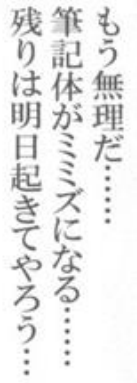 もう無理だ……
筆記体がミミズになる……
残りは明日起きてやろう…